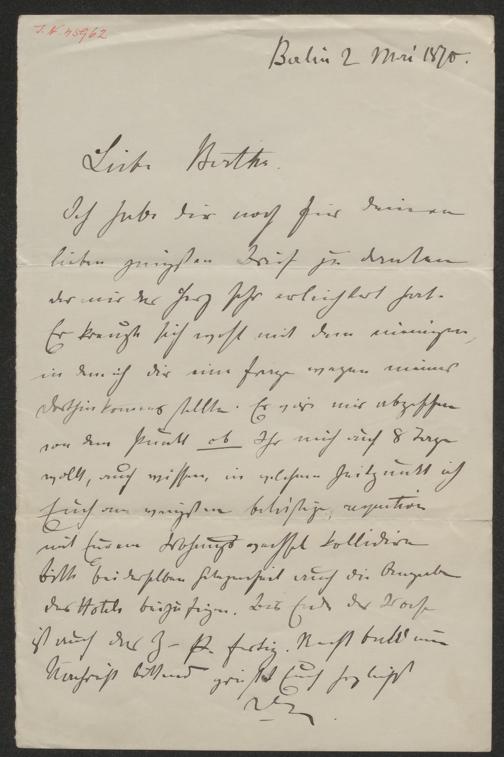 J. N. 45962
Berlin 2 Mai 1870.
Liebe Bertha.
Ich habe dir noch für deinen
lieben Brief zu danken
der mir das Herz sehr erleichtert hat.
Er kreuzte sich wohl mit dem meinigen,
in dem ich dir eine Frage wegen meines
Dorthinkommens stellte. Es wäre mir abgesehen
von dem Punkt ob Ihr mich auch 8 Tage
wollt, auch wissen, in welchem Zeitpunkt ich
Euch am wenigsten belästige,
mit Eurem Wohnungswechsel kollidire
bitte bei derselben Gelegenheit auch die Angabe
des Hotels beizufügen. Bis Ende der Woche
ist auch das fertig. Recht bald um
Nachricht bittend grüßt Euch herzlichst